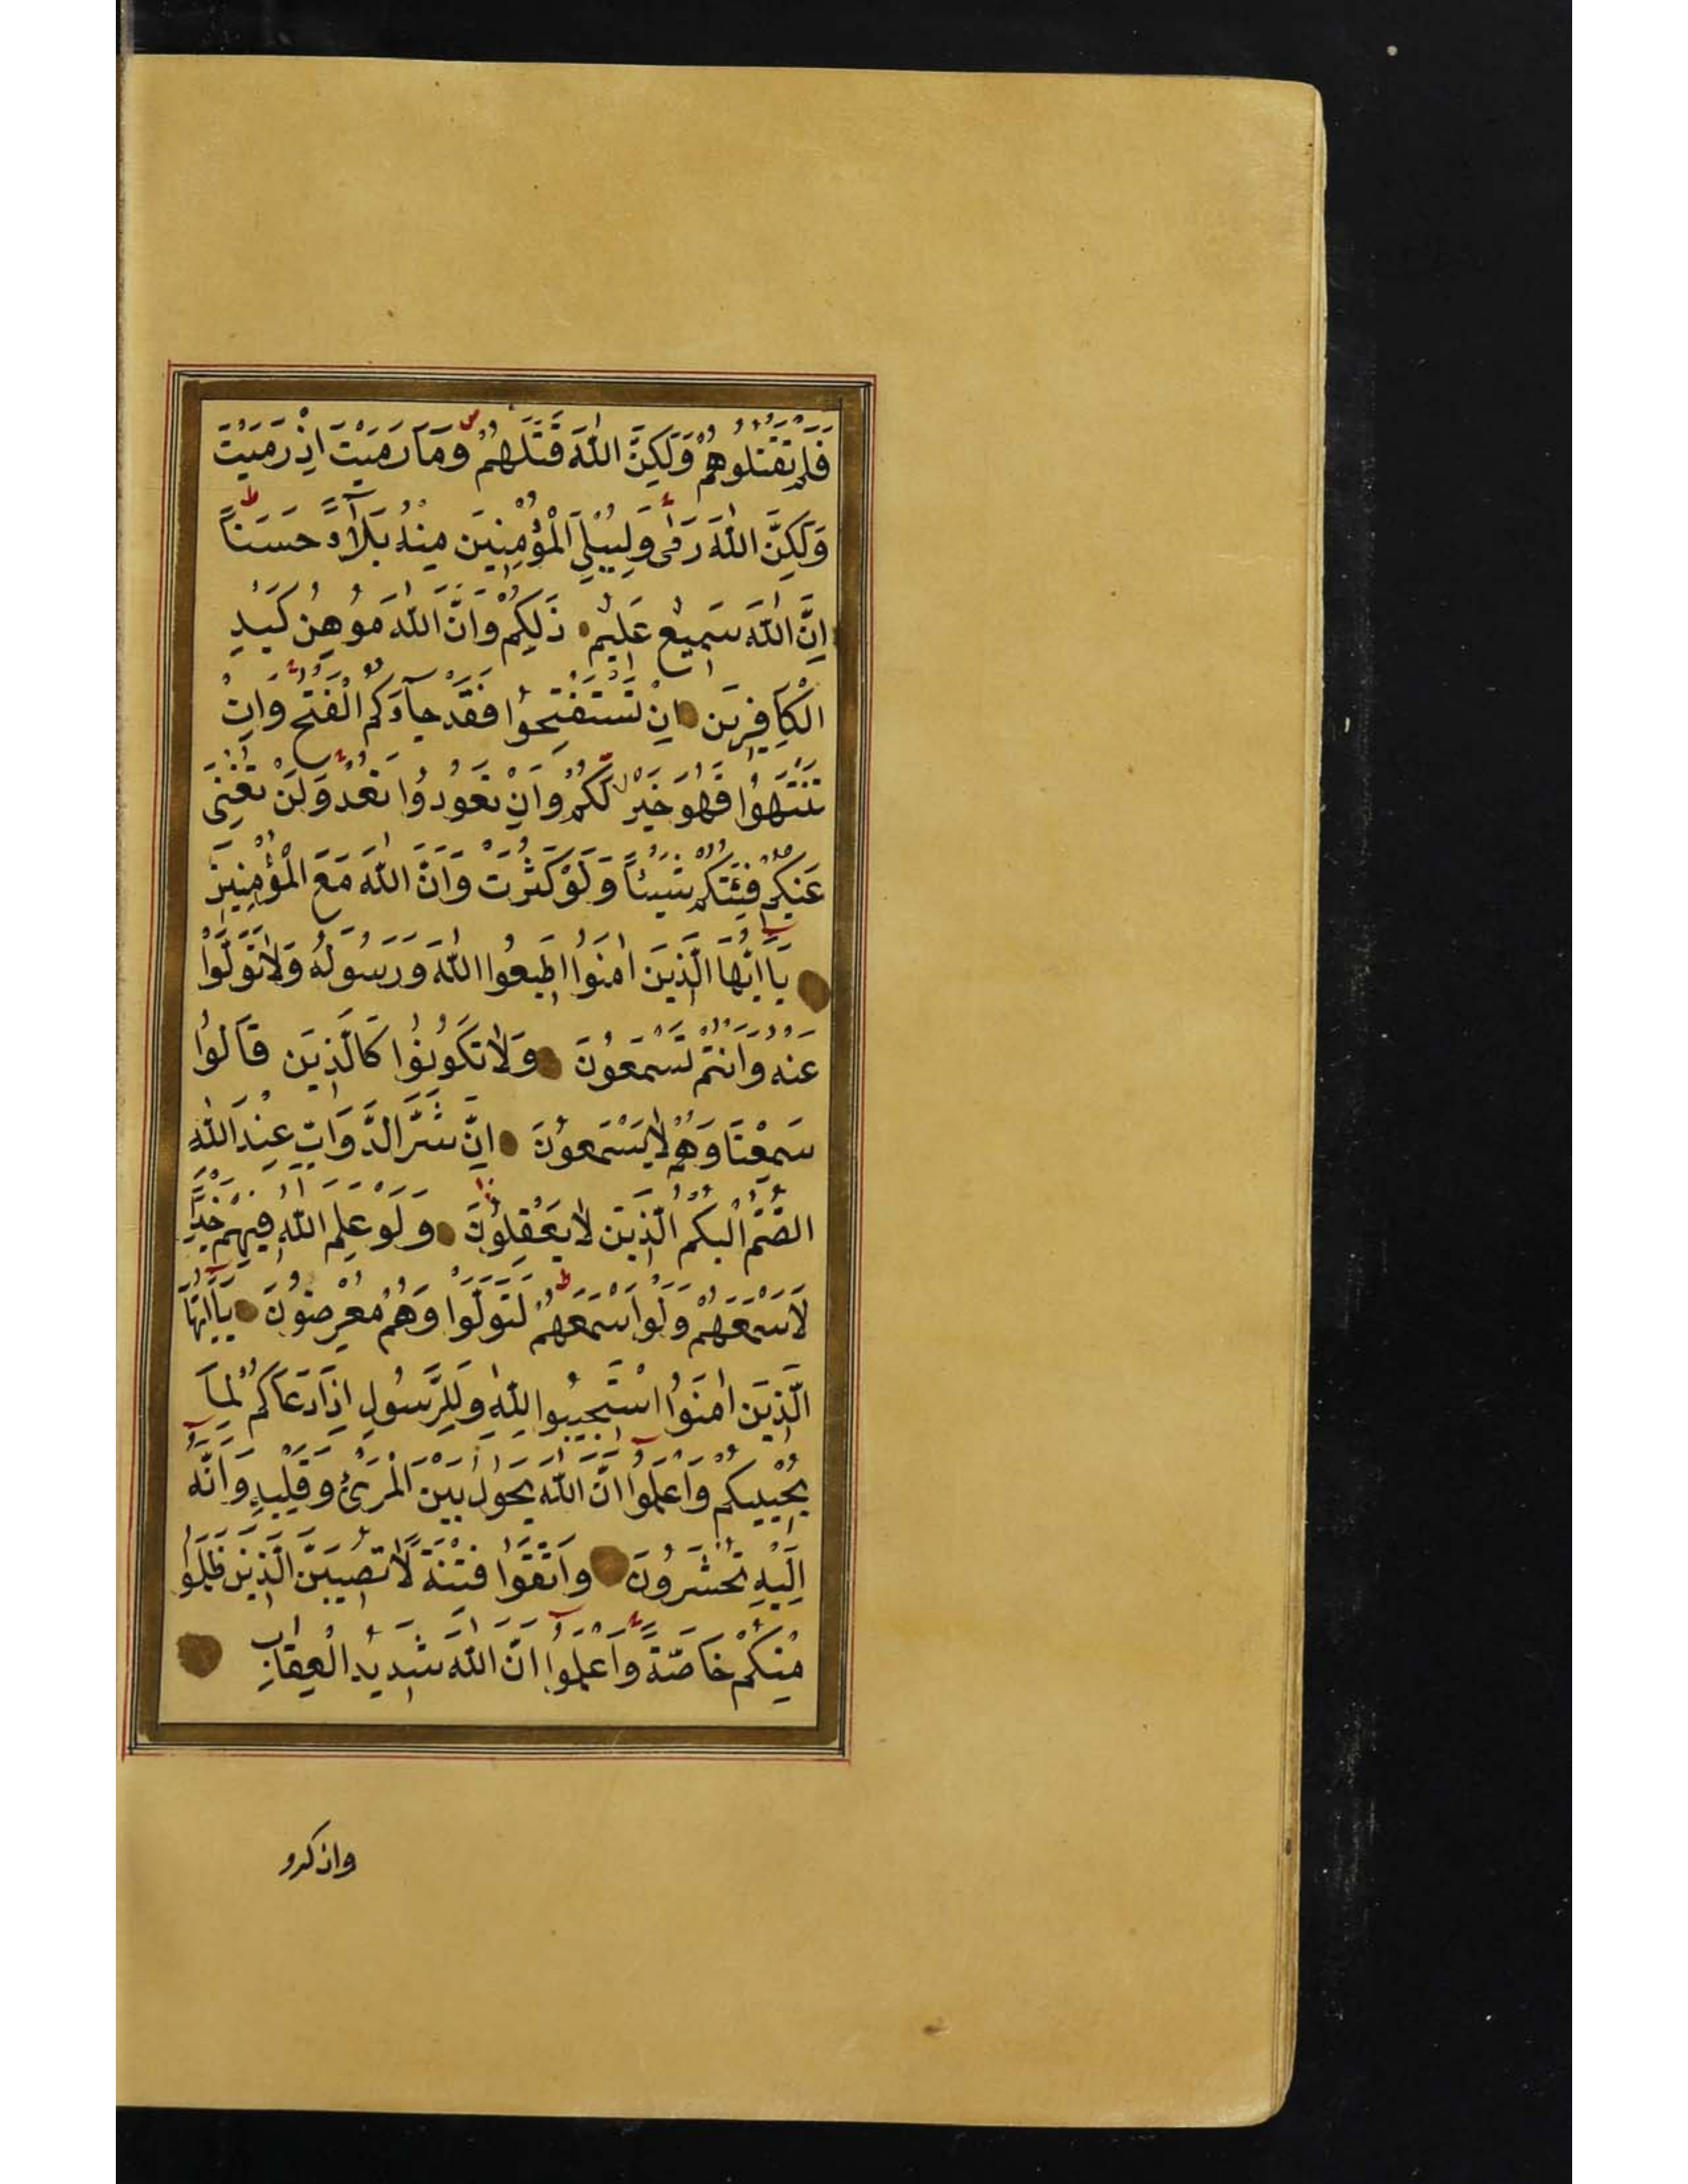 فَلَمْ تَقْتُلُوهُمْ وَلَكِنَّ اللّٰهَ قَتَلَهُمْ وَمَا رَمَيْتَ اِذْ رَمَيْتَ
وَلَكِنَّ اللّٰهَ رَمٰى وَلِيُبْلِىَ الْمُؤْمِنِينَ مِنْهُ بَلَآءً حَسَنًا
اِنَّ اللّٰهَ سَمِيعٌ عَلِيمٌ ذَلِكُمْ وَاَنَّ اللّٰهَ مُوهِنُ كَيْدِ
الْكَافِرِينَ اِنْ تَسْتَفْتِحُوا فَقَدْ جَآءَكُمُ الْفَتْحُ وَاِنْ
تَنْتَهُوا فَهُوَ خَيْرٌ لَكُمْ وَاِنْ تَعُودُوا نَعُدْ وَلَنْ تُغْنِىَ
عَنْكُمْ فِئَتُكُمْ شَيْئًا وَلَوْ كَثُرَتْ وَاَنَّ اللّٰهَ مَعَ الْمُؤْمِنِينَ
يَآ اَيُّهَا الَّذِينَ اٰمَنُوا اَطِيعُوا اللّٰهَ وَرَسُولَهُ وَلَا تَوَلَّوْا
عَنْهُ وَاَنْتُمْ تَسْمَعُونَ وَلَا تَكُونُوا كَالَّذِينَ قَالُوا
سَمِعْنَا وَهُمْ لَا يَسْمَعُونَ اِنَّ شَرَّ الدَّوَابِّ عِنْدَ اللّٰهِ
الصُّمُّ الْبُكْمُ الَّذِينَ لَا يَعْقِلُونَ وَلَوْ عَلِمَ اللّٰهُ فِيهِمْ خَيْرًا
لَاَسْمَعَهُمْ وَلَوْ اَسْمَعَهُمْ لَتَوَلَّوْا وَهُمْ مُعْرِضُونَ يَآ اَيُّهَا
الَّذِينَ اٰمَنُوا اسْتَجِيبُوا لِلّٰهِ وَلِلرَّسُولِ اِذَا دَعَاكُمْ لِمَا
يُحْيِيكُمْ وَاعْلَمُوا اَنَّ اللّٰهَ يَحُولُ بَيْنَ الْمَرْئِ وَقَلْبِهِ وَاَنَّهُ
اِلَيْهِ تُحْشَرُونَ وَاتَّقُوا فِتْنَةً لَا تُصِيبَنَّ الَّذِينَ ظَلَمُوا
مِنْكُمْ خَاصَّةً وَاعْلَمُوا اَنَّ اللّٰهَ شَدِيدُ الْعِقَابِ
واذكرو